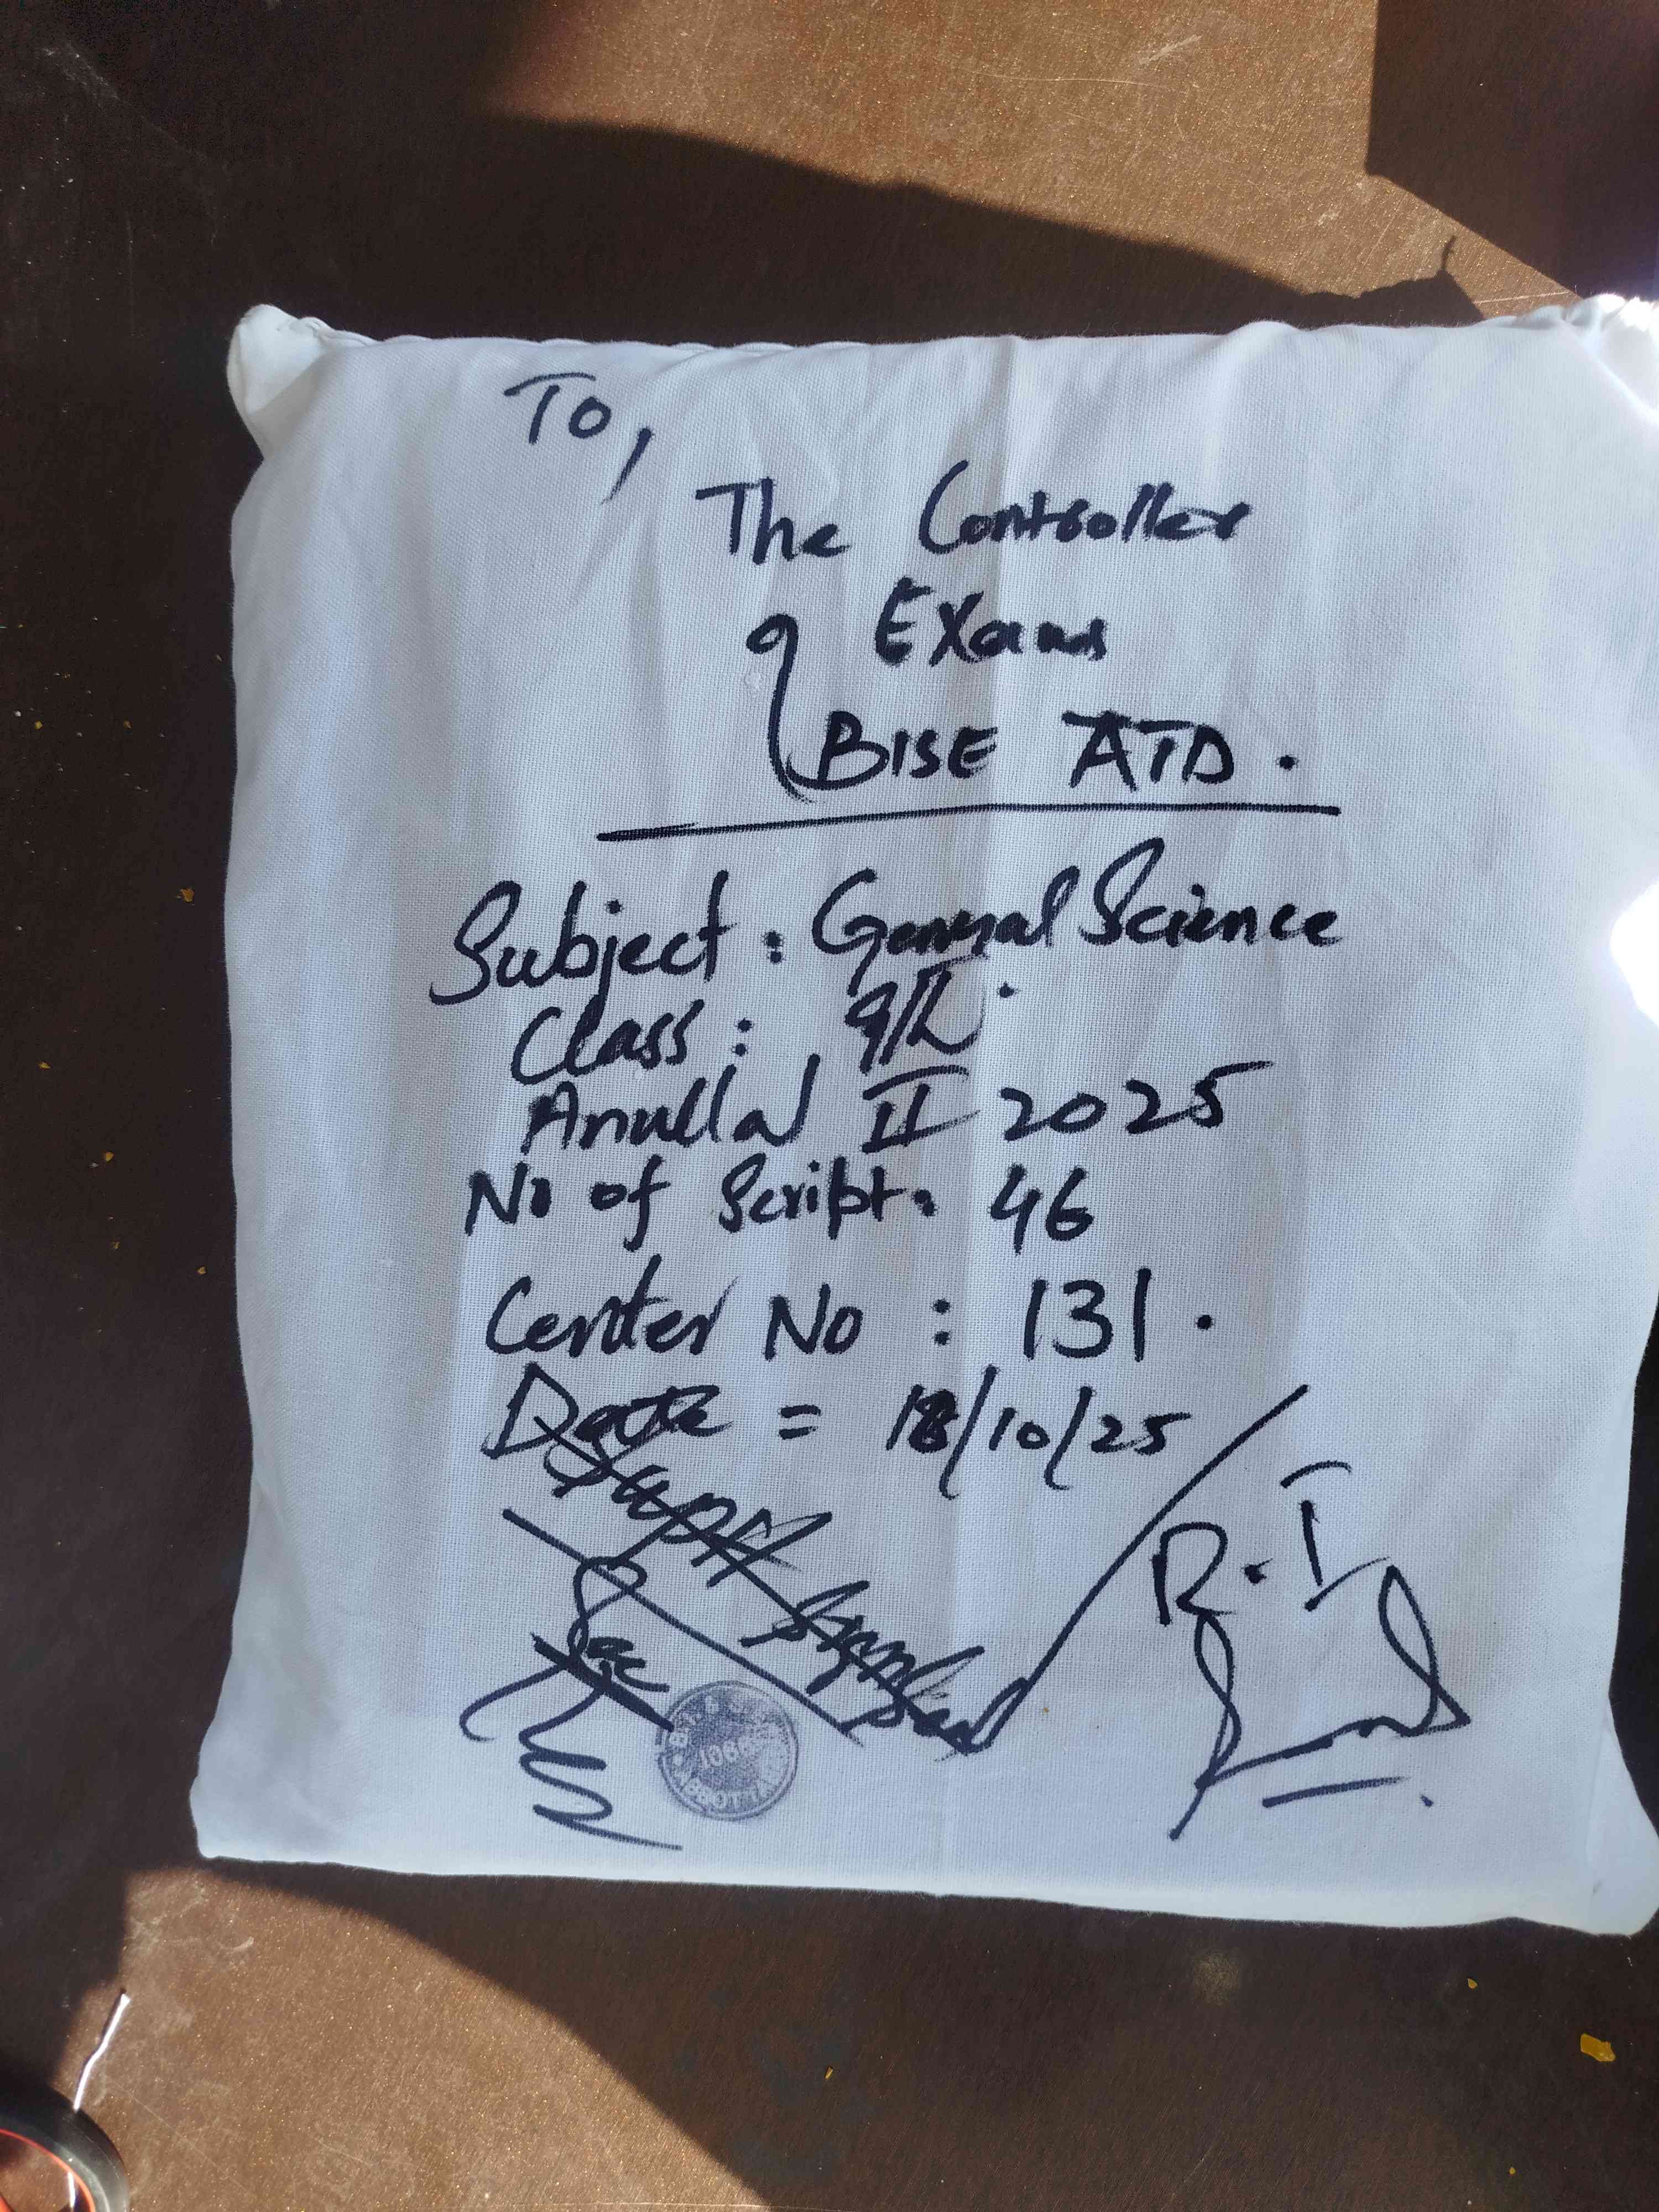 To,
The Controller
Exams
BISE ATD.
Subject: General Science
Class: 9th
Anulal II 2025
No of Script. 46
Center No: 131.
Date = 18/10/25
Supdt
R.I